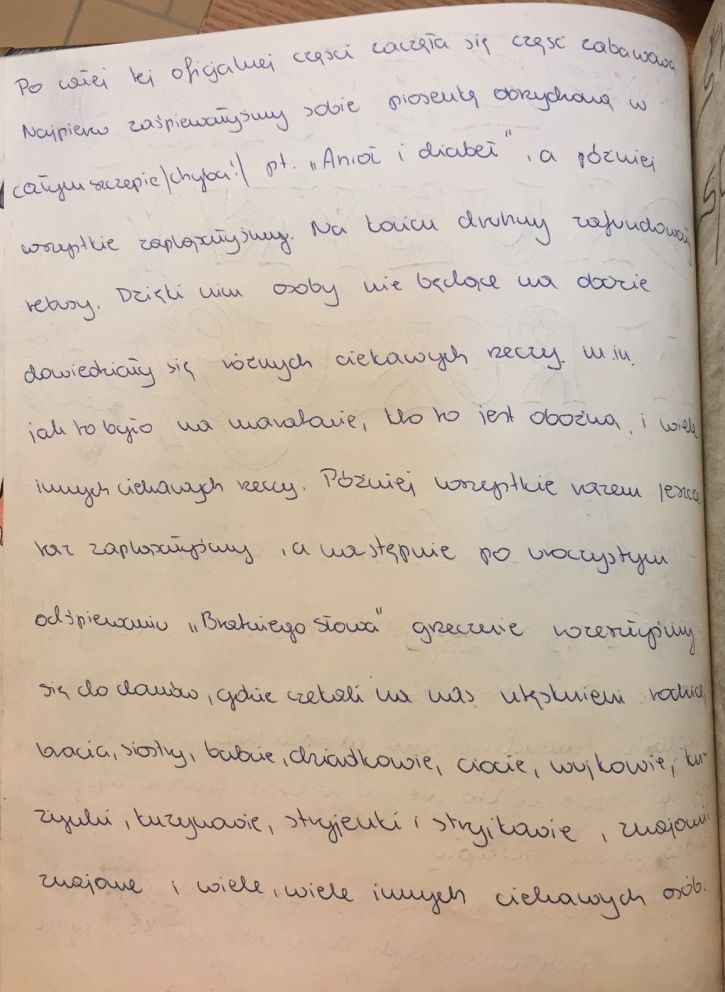 Po całej tej oficjalnej części zaczęła się część zabawowa
Najpierw zaśpiewałyśmy sobie piosenkę obrzydzoną w
całym szczepie/chyba!/ pt. „Anioł i diabeł", a później
wszystkie zapląsałyśmy. Na końcu druhny zafundowały
rebusy. Dzięki nim osoby nie będące na obozie
dowiedziały się różnych ciekawych rzeczy. m.in.
jak to było na maratonie, kto to jest oboźna, i wiele
innych ciekawych rzeczy. Później wszystkie razem jeszcze
raz zapląsałyśmy, a następnie po uroczystym
odśpiewaniu „Bratniego Słowa" grzecznie rozeszłyśmy
się do domów, gdzie czekali na nas utęsknieni rodzice,
bracia, siostry, babcie, dziadkowie, ciocie, wujkowie, ku-
zynki, kuzynowie, stryjenki i stryjkowie, znajomi
znajome i wiele, wiele innych ciekawych osób.